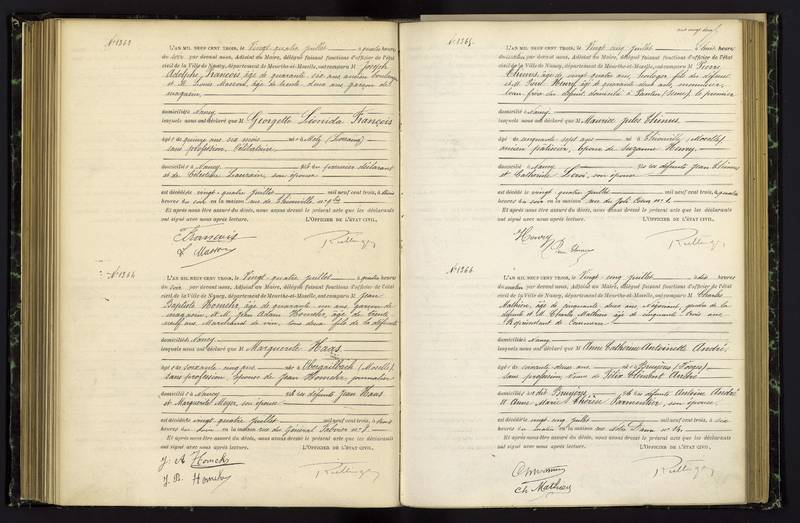 N° 1363
L'AN MIL NEUF CENT TROIS, le Vingt-quatre juillet à quatre heures
du soir par devant nous, Adjoint au Maire, délégué faisant fonctions d'officier de l'état
civil de la Ville de Nancy, département de Meurthe-et-Moselle, ont comparu M Joseph
Adolphe François, âge de quarante six ans ancien boulanger
et M. Louis Masson, âgé de trente deux ans garçon de
magasin,
domiciliés à Nancy
lesquels nous ont déclaré que M Georgette Léonida François
âgée de quinze ans six mois née à Metz (Lorraine)
sans profession, Célibataire
domiciliée à Nancy fille du premier déclarant
et de Célestine Lauxain, son épouse
est décédée vingt-quatre juillet mil neuf cent trois, à
heures du soir en la maison rue de Thionville n°
Et après nous être assuré du décès, nous avons dressé le présent acte que les déclarants
ont signé avec nous après lecture. L'OFFICIER DE L'ÉTAT CIVIL,
François
L Masson
N° 1364
L'AN MIL NEUF CENT TROIS, le Vingt-quatre juillet à quatre heures
du soir par devant nous, Adjoint au Maire, délégué faisant fonctions d'officier de l'état
civil de la Ville de Nancy, département de Meurthe-et-Moselle, ont comparu M Jean
Baptiste Homehr, âgé de quarante un ans garçon de
magasin, et M. Jean Adam Homehr, âgé de trente
neuf ans Marchand de vin, tous deux fils de la défunte
domiciliés Nancy
lesquels nous ont déclaré que M Marguerite Haas
âgée de soixante cinq ans née à Obergailbach (Moselle)
sans profession épouse de Jean Homehr journalier
domiciliée à Nancy fille des défunts Jean Haas
et Marguerite Meyer, son épouse
est décédée vingt quatre juillet mil neuf cent trois, à
heures du en la maison rue du Général Fabvier n° 8
Et après nous être assuré du décès, nous avons dressé le présent acte que les déclarants
ont signé avec nous après lecture. L'OFFICIER DE L'ÉTAT CIVIL,
J. A Homehr
J. B. Homehr
N° 1365
L'AN MIL NEUF CENT TROIS, le Vingt cinq juillet à heures
du matin par devant nous, Adjoint au Maire, délégué faisant fonctions d'officier de l'état
civil de la Ville de Nancy, département de Meurthe-et-Moselle, ont comparu M Pierre
Thirus âgé de vingt quatre ans, horloger fils du défunt
et M. Paul Henry âgé de quarante deux ans,
beau frère du défunt, domicilié à Pantin (Seine) le premier
domicilié à Nancy
lesquels nous ont déclaré que M Maurice Jules Thirus
âgé de cinquante sept ans né à Thionville (Moselle)
ancien pâtissier, époux de Suzanne Henry
domicilié à Nancy fils des défunts Jean Thirus
et Catherine son épouse
est décédé le vingt quatre juillet mil neuf cent trois, à quatre
heures du soir en la maison rue du Joli Cœur n° 1
Et après nous être assuré du décès, nous avons dressé le présent acte que les déclarants
ont signé avec nous après lecture. L'OFFICIER DE L'ÉTAT CIVIL,
Henry
N° 1366
L'AN MIL NEUF CENT TROIS, le Vingt cinq juillet à dix heures
du matin par devant nous, Adjoint au Maire, délégué faisant fonctions d'officier de l'état
civil de la Ville de Nancy, département de Meurthe-et-Moselle, ont comparu M Charles
Mathieu, âgé de quarante deux ans, Négociant, gendre de la
défunte et M. Charles Mathieu âgé de cinquante trois ans
Représentant de Commerce
domiciliés à Nancy
lesquels nous ont déclaré que M Anne Catherine Antoinette André
âgée de soixante deux ans née à Bruyères (Vosges)
sans profession Veuve de Félix Clément André
domiciliée au dit Bruyères fille des défunts Antoine André
et Anne Marie Thérèse Parmentier, son épouse
est décédée vingt cinq juillet mil neuf cent trois, à
heures du matin en la maison rue Notre Dame n° 14
Et après nous être assuré du décès, nous avons dressé le présent acte que les déclarants
ont signé avec nous après lecture. L'OFFICIER DE L'ÉTAT CIVIL,
Ch Mathieu